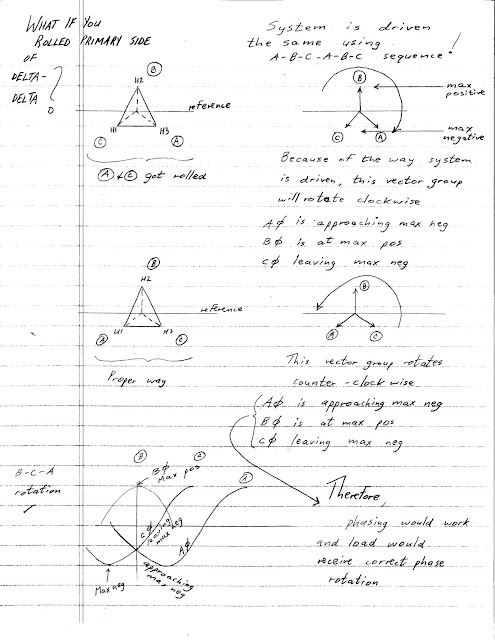 WHAT IF YOU
ROLLED PRIMARY SIDE
OF
DELTA-
DELTA
?
B
H2
reference
H1
H3
C
A
A & C got rolled
System is driven
the same using
A-B-C-A-B-C sequence!
B
max
positive
C
A
max
negative
Because of the way system
is driven, this vector group
will rotate clockwise
AΦ is approaching max neg
BΦ is at max pos
CΦ leaving max neg
B
H2
reference
H1
H3
A
C
Proper way
B
A
C
This vector group rotates
counter-clockwise
AΦ is approaching max neg
BΦ is at max pos
CΦ leaving max neg
B-C-A
rotation
✓
B
C
A
BΦ
Max pos
CΦ
leaving
max neg
AΦ
approaching
max neg
Max neg
Therefore,
phasing would work
and load would
receive correct phase
rotation